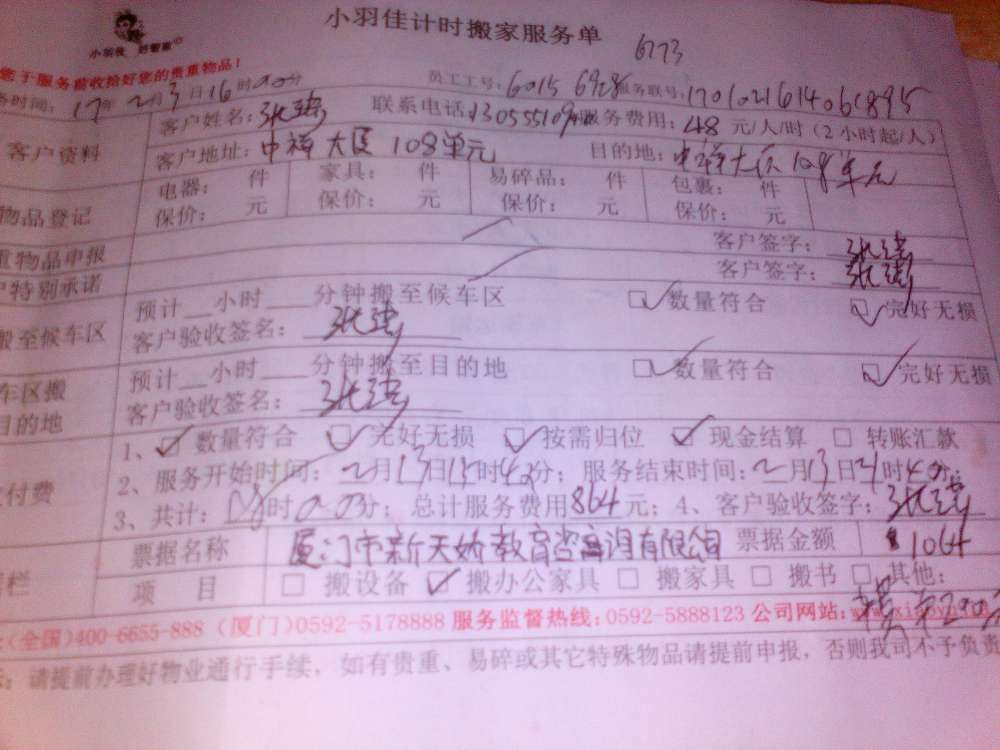 小羽佳计时搬家服务单
6173
小羽佳 好管家
您于服务前收拾好您的贵重物品!
务时间: 17年2月3日16时00分 员工工号: 6015 6928 服务联号: 1701021614061895
客户资料 客户姓名: 联系电话: 服务费用: 48 元/人/时 (2小时起/人)
客户地址: 中祥大厦108单元 目的地: 中祥大厦108单元
物品登记 电器: 件 家具: 件 易碎品: 件 包裹: 件
保价: 元 保价: 元 保价: 元 保价: 元
重物品申报 客户签字:
户特别承诺 客户签字:
搬至候车区 预计__小时__分钟搬至候车区 ☑数量符合 ☑完好无损
客户验收签名:
车区搬 预计__小时__分钟搬至目的地 ☑数量符合 ☑完好无损
目的地 客户验收签名:
付费 1、☑数量符合 ☑完好无损 ☑按需归位 ☑现金结算 □转账汇款
2、服务开始时间: 2月13日15时40分; 服务结束时间: 2月13日21时40分;
3、共计: 时 分; 总计服务费用864元; 4、客户验收签字:
栏 票据名称 厦门市新天娇教育咨询有限公司 票据金额 1064
项 目 □搬设备 ☑搬办公家具 □搬家具 □搬书 □其他:
(全国)400-6655-888 (厦门)0592-5178888 服务监督热线: 0592-5888123 公司网站:
请提前办理好物业通行手续, 如有贵重、易碎或其它特殊物品请提前申报, 否则我司不予负责